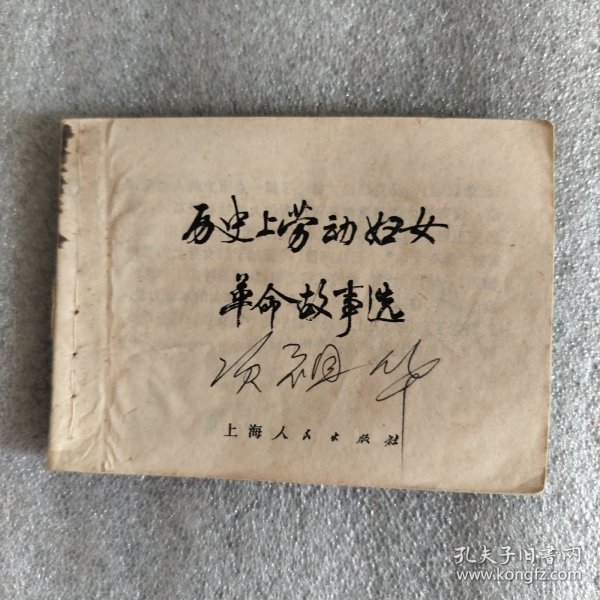 历史上劳动妇女
革命故事选
项祖华
上海人民出版社
孔夫子旧书网
www.kongfz.com